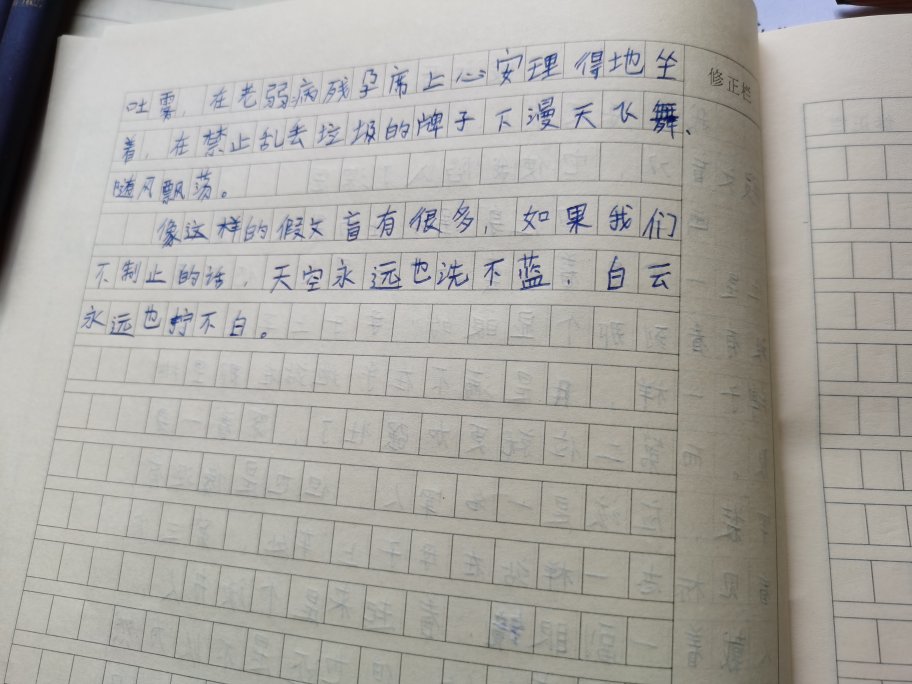 吐雾，在老弱病残孕席上心安理得地坐
着，在禁止乱丢垃圾的牌子下漫天飞舞、
随风飘荡。
像这样的假文盲有很多，如果我们
不制止的话，天空永远也洗不蓝，白云
永远也拧不白。
修正栏